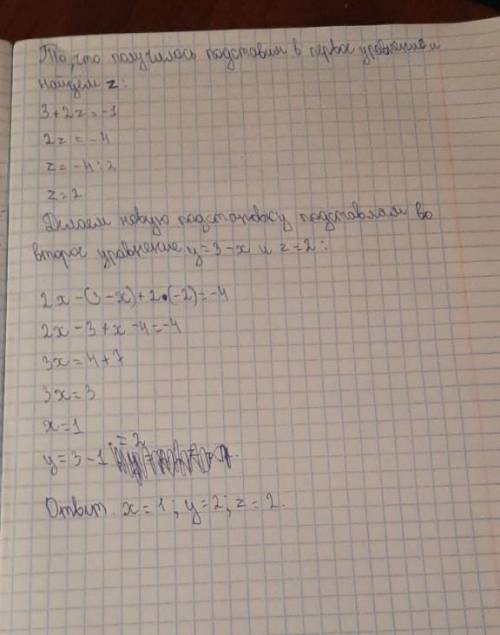 То, что получилась подставим в первое уравнение и
найдем z:
3+2z=-1
2z=-4
z=-4:2
z=2
Делаем новую подстановку подставляем во
второе уравнение y=3-x и z=2:
2x-(3-x)+2•(-2)=-4
2x-3+x-4=-4
3x=4+7
3x=3
x=1
y=3-1=2
Ответ. x=1; y=2; z=2.